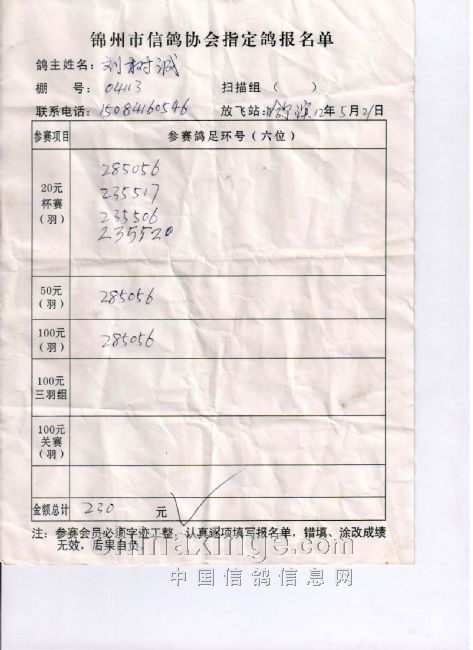 锦州市信鸽协会指定鸽报名单
鸽主姓名：刘树诚
棚 号：04113 扫描组（ ）
联系电话：15084160546 放飞站：哈尔滨12年5月21日
参赛项目 参赛鸽足环号（六位）
20元
杯赛
（羽）
285056
235517
235506
235520
50元
（羽）
285056
100元
（羽）
285056
100元
三羽组
100元
关赛
（羽）
金额总计 230 元
注：参赛会员必须字迹工整，认真逐项填写报名单，错填、涂改成绩
无效，后果自负。
chinaxinge.com
中国信鸽信息网